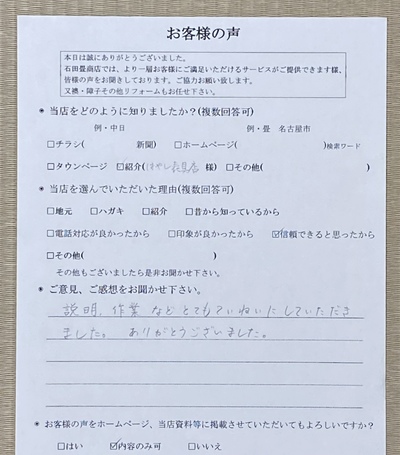 お客様の声
本日は誠にありがとうございました。
石田畳商店では、より一層お客様にご満足いただけるサービスがご提供できます様、
皆様の声をお聞きしております。ご協力お願い致します。
又襖・障子その他リフォームもお任せ下さい。
* 当店をどのように知りましたか?(複数回答可)
例・中日 例・畳 名古屋市
□チラシ( 新聞) □ホームページ( )検索ワード
□タウンページ ☑紹介(はやし 様) □その他( )
* 当店を選んでいただいた理由(複数回答可)
□地元 □ハガキ □紹介 □昔から知っているから
□電話対応が良かったから □印象が良かったから ☑信頼できると思ったから
□その他( )
その他もございましたら是非お聞かせ下さい。
* ご意見、ご感想をお聞かせ下さい。
説明、作業 など とてもていねいに していただき
ました。 ありがとうございました。
* お客様の声をホームページ、当店資料等に掲載させていただいてもよろしいですか?
□はい ☑内容のみ可 □いいえ